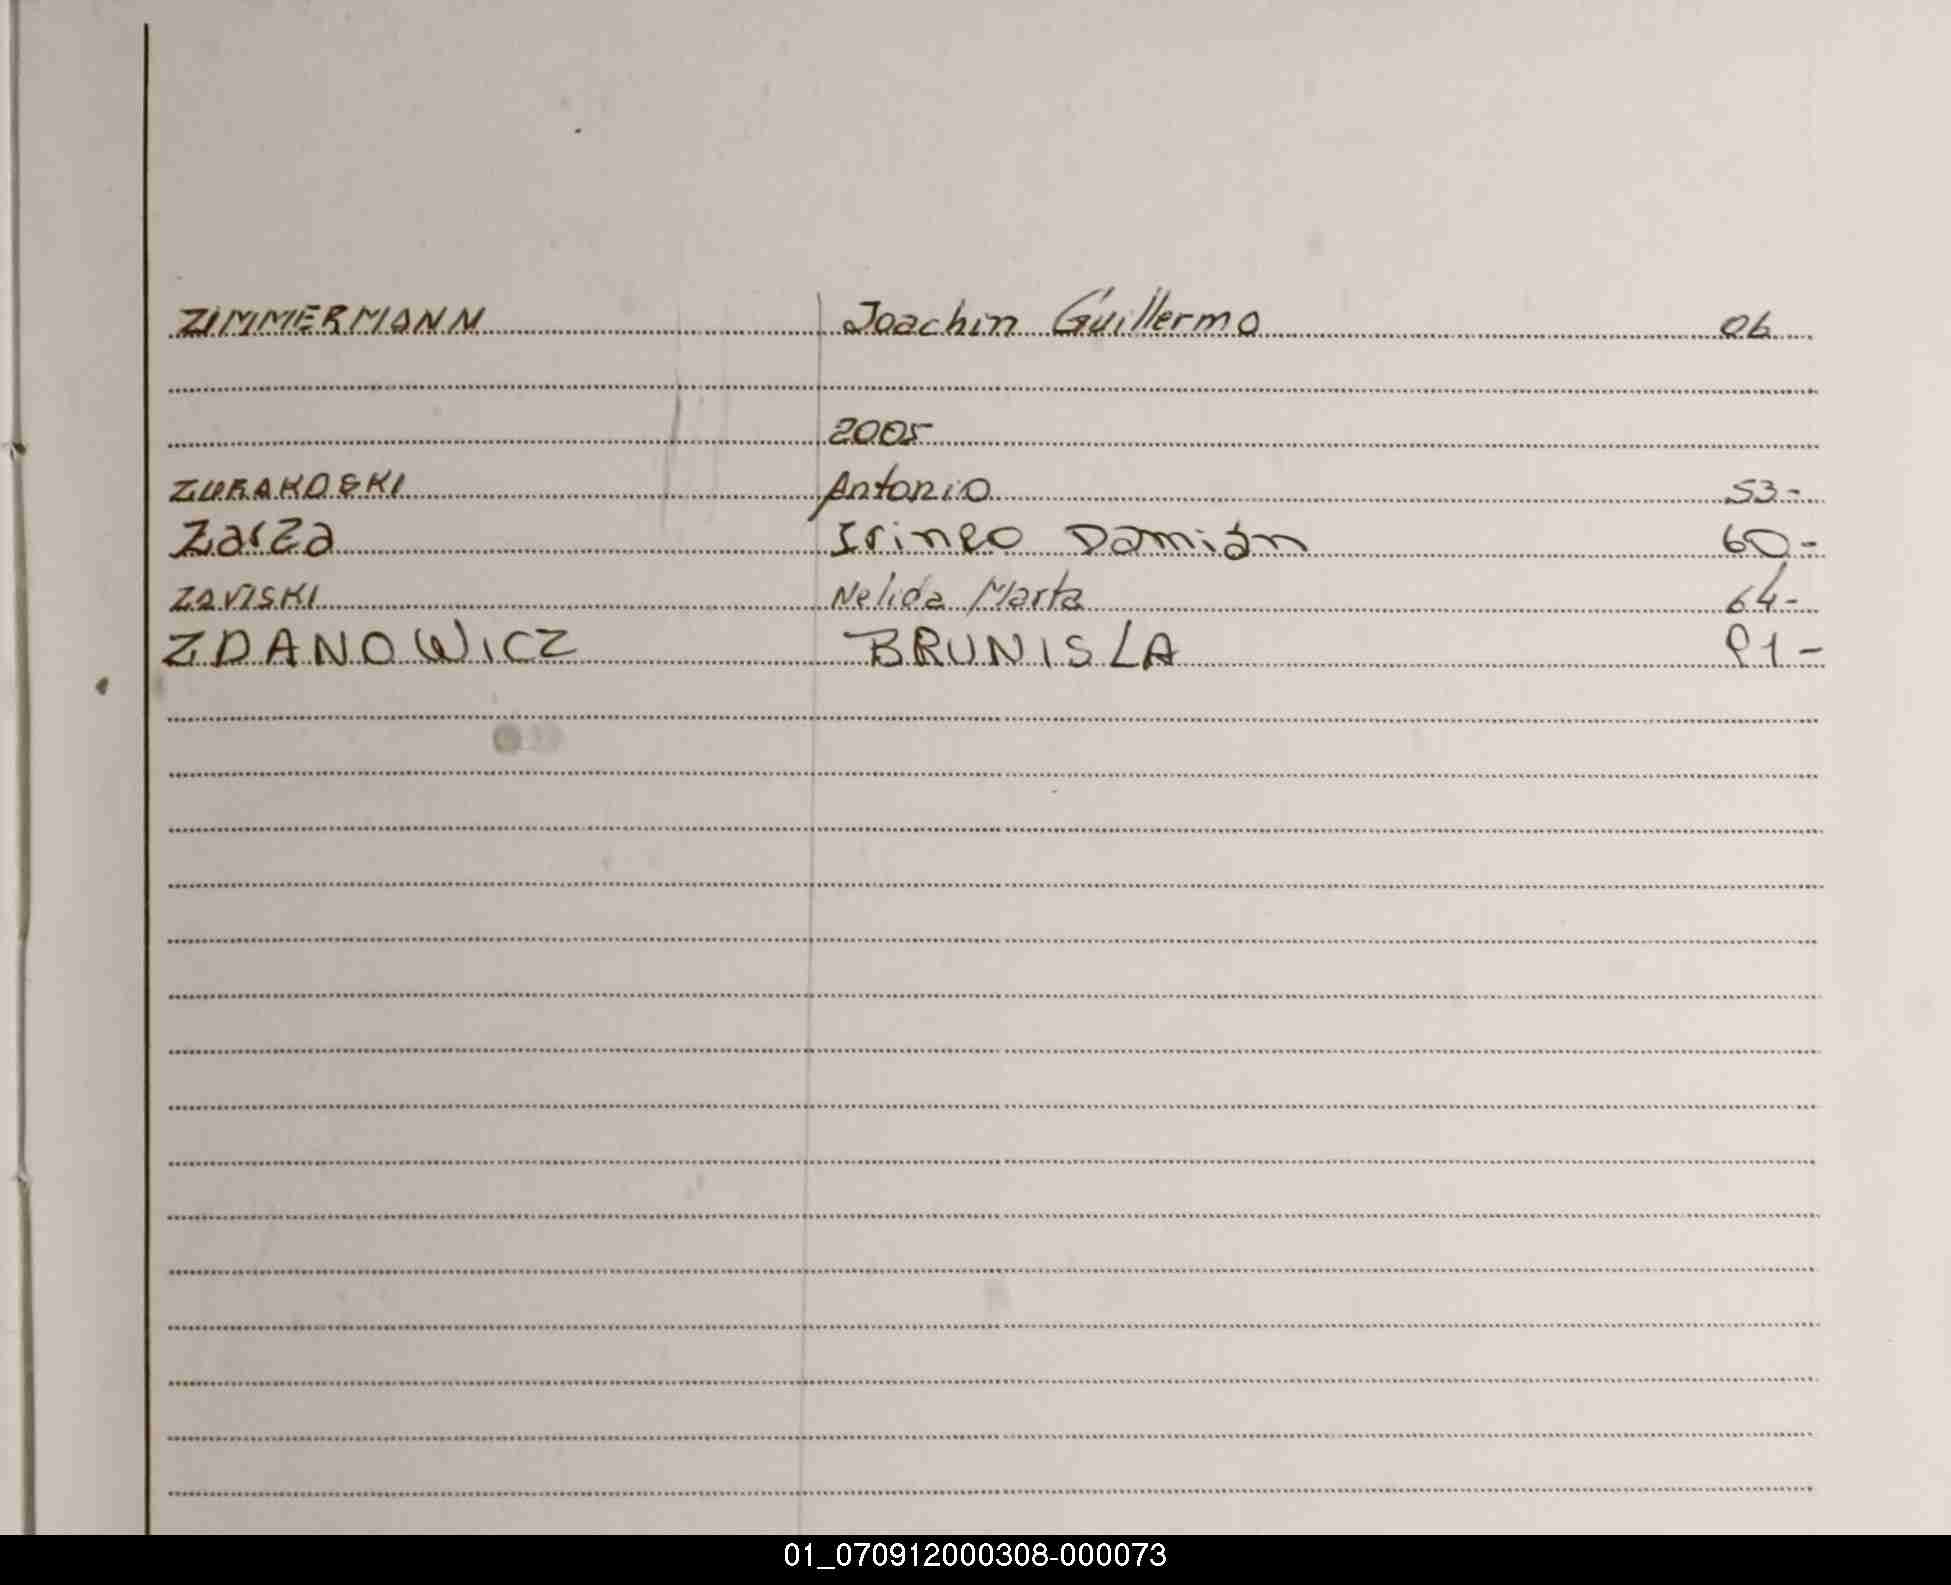 ZIMMERMANN Joachin Guillermo 06
2005
ZURAKOSKI Antonio 53-
Zarza Irineo Damián 60-
ZAVISKI Nelida Marta 64-
ZDANOWICZ BRUNISLA 91-
01_070912000308-000073